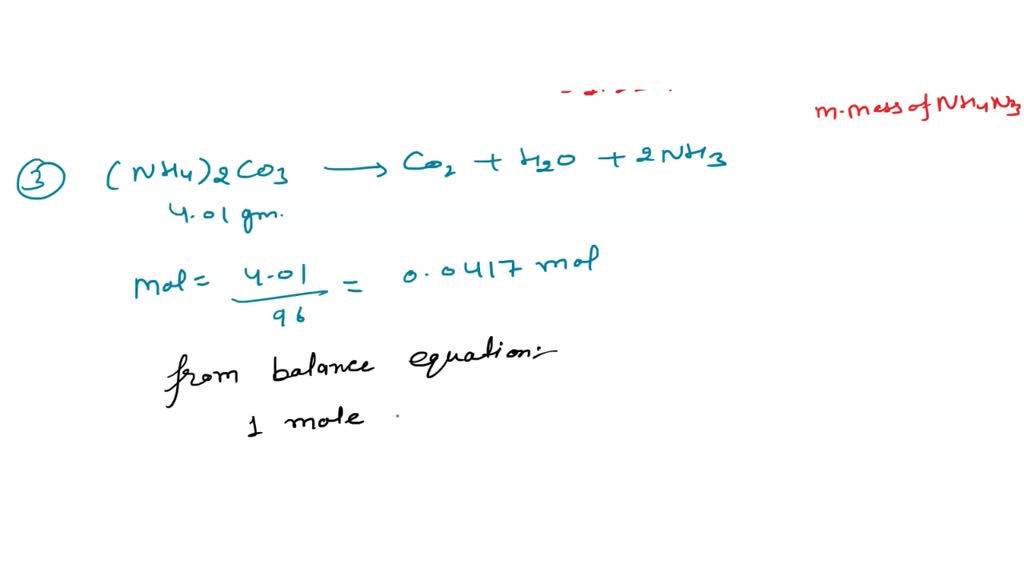 m.mess of NH4N3
③ (NH4)2CO3 → CO2 + H2O + 2NH3
4.01 gm.
mol = 4.01 / 96 = 0.0417 mol
from balance equation:-
1 mole